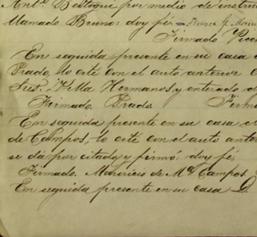 Art.º Bestogue por medio de instru
llamado Bruno doy fe
Firmado
En seguida presente en su casa
Prado, lo cité con el auto anterior
Test. Villa Hermanos y enterado
Firmado Prado Firm
En seguida presente en su casa
de Campos, lo cité con el auto anter
se dá por citado y firmó doy fé
Firmado. Mauricio de M. Campos
En seguida presente en su casa D